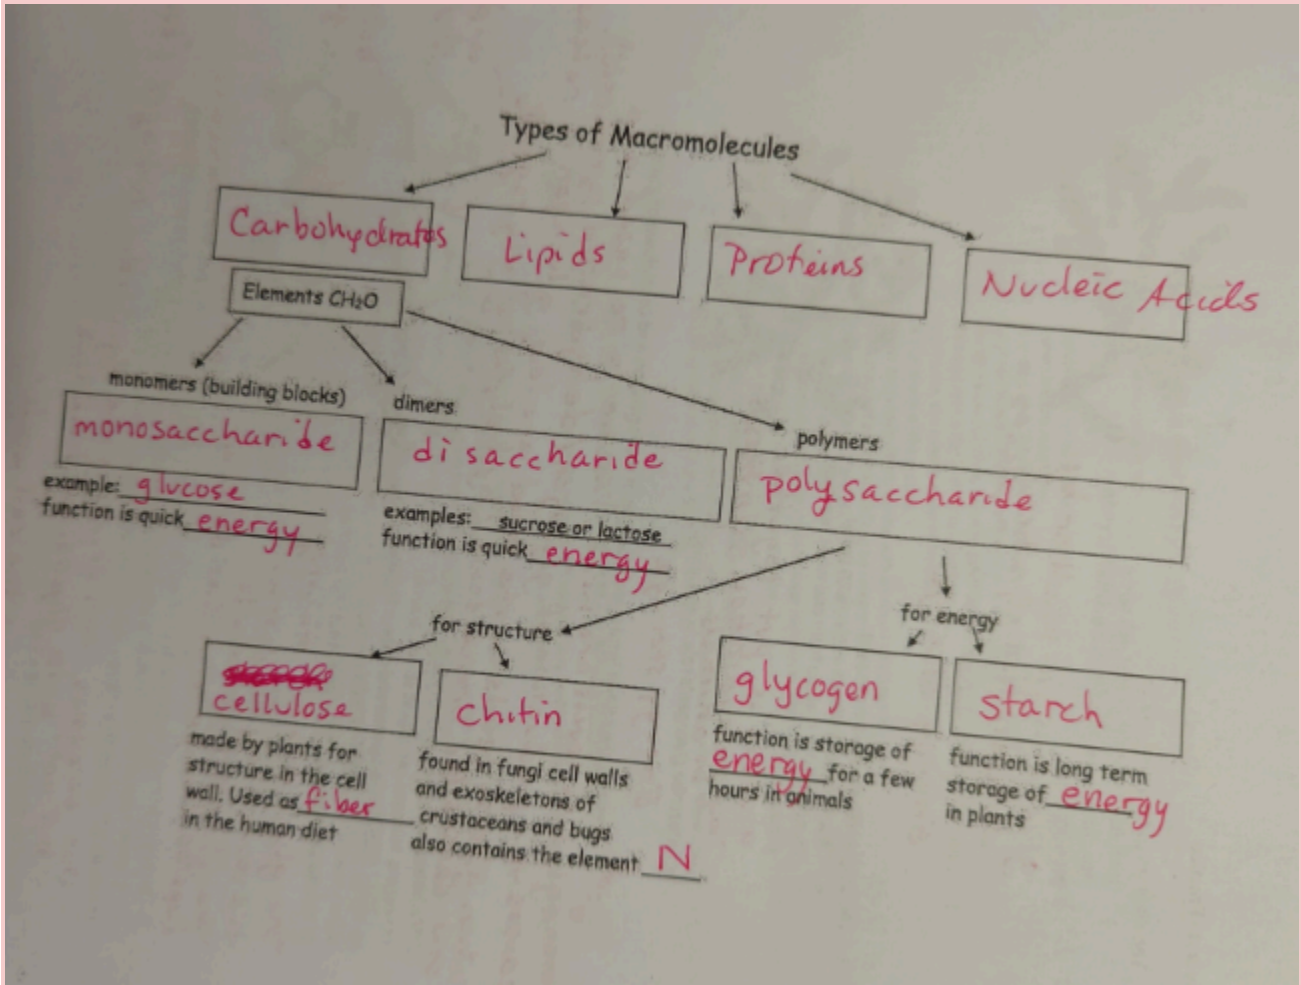 Types of Macromolecules
Carbohydrates
Lipids
Proteins
Nucleic Acids
Elements CH₂O
monomers (building blocks)
monosaccharide
example: glucose
function is quick energy
dimers
disaccharide
examples: sucrose or lactose
function is quick energy
polymers
polysaccharide
for structure
cellulose
made by plants for
structure in the cell
wall. Used as fiber
in the human diet
chitin
found in fungi cell walls
and exoskeletons of
crustaceans and bugs
also contains the element N
for energy
glycogen
function is storage of
energy for a few
hours in animals
starch
function is long term
storage of energy
in plants